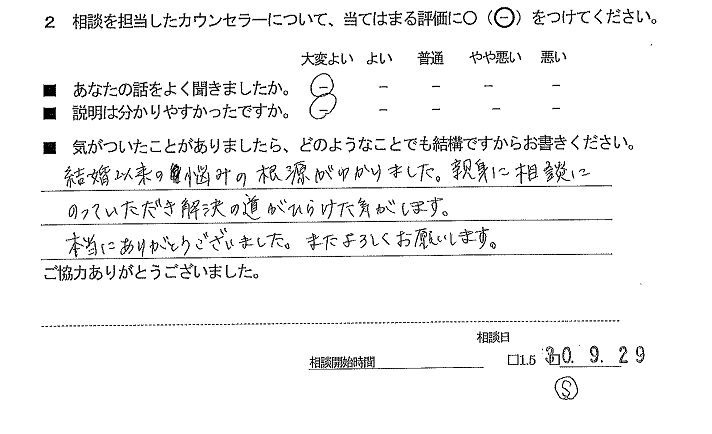 2 相談を担当したカウンセラーについて、当てはまる評価に〇（⊖）をつけてください。
大変よい よい 普通 やや悪い 悪い
■ あなたの話をよく聞きましたか。 － － － － －
■ 説明は分かりやすかったですか。 － － － － －
■ 気がついたことがありましたら、どのようなことでも結構ですからお書きください。
結婚以来の悩みの根源がわかりました。親身に相談に
のっていただき解決の道がひらけた気がします。
本当にありがとうございました。またよろしくお願いします。
ご協力ありがとうございました。
相談日
相談開始時間 □1.5 30. 9. 29
Ⓢ